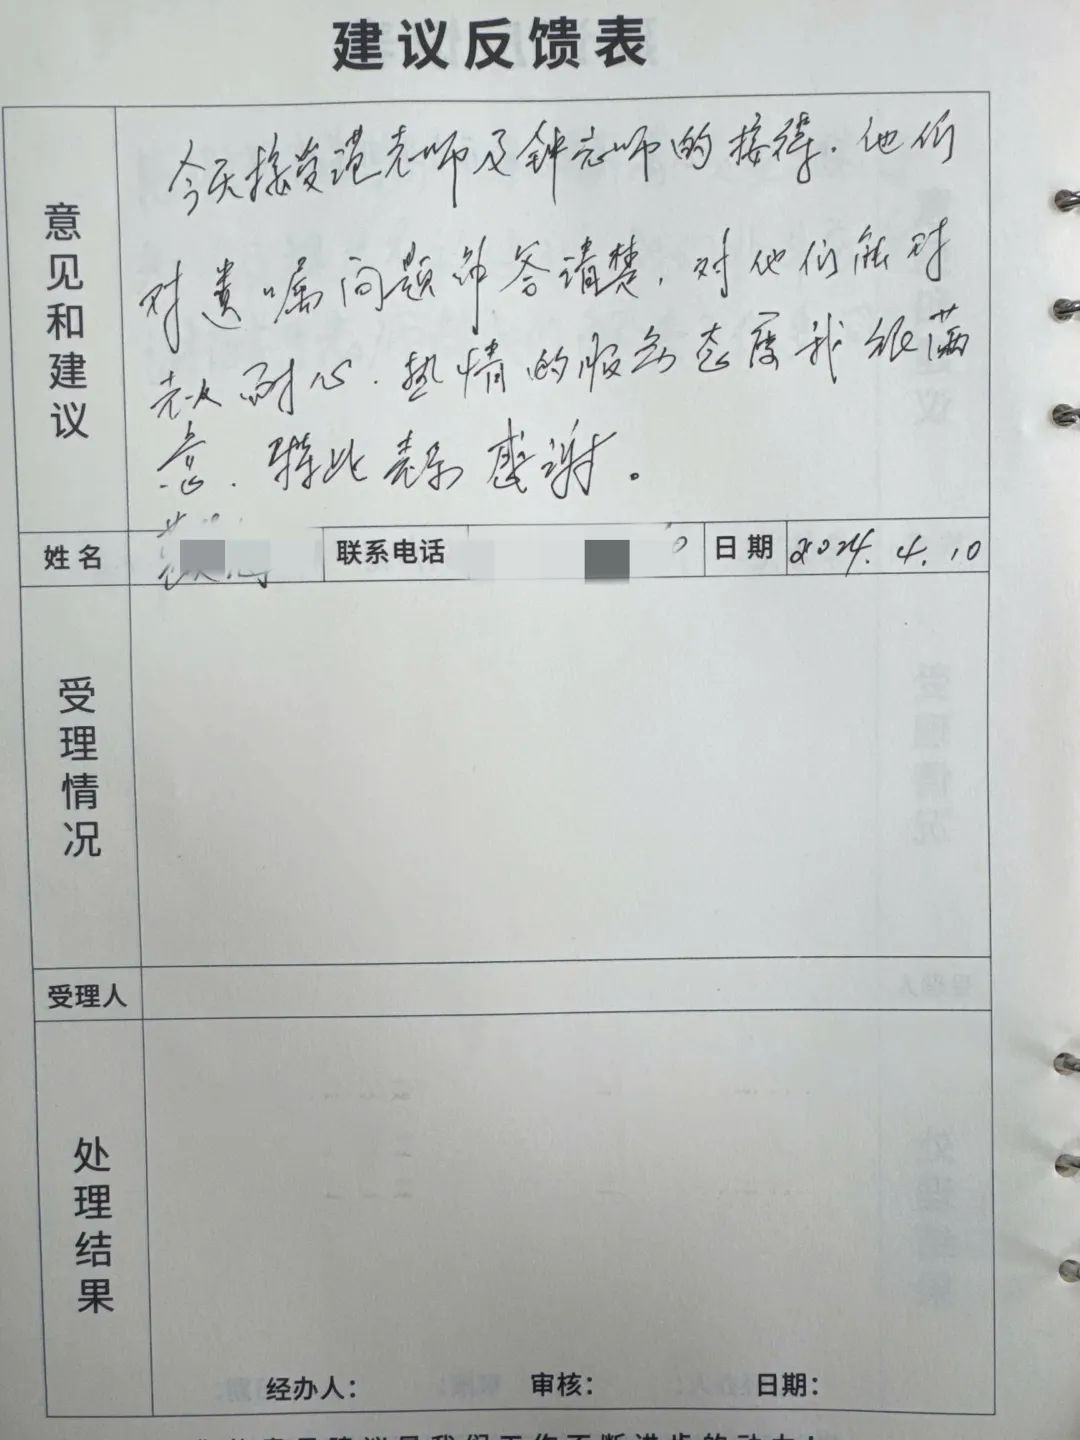 建议反馈表
意见和建议
今天接受范老师及钟老师的接待.他们
对遗嘱问题解答清楚,对他们能对
耐心.热情的服务态度我很满
意.特此表示感谢。
姓名
联系电话
日期 2024.4.10
受理情况
受理人
处理结果
经办人: 审核: 日期: